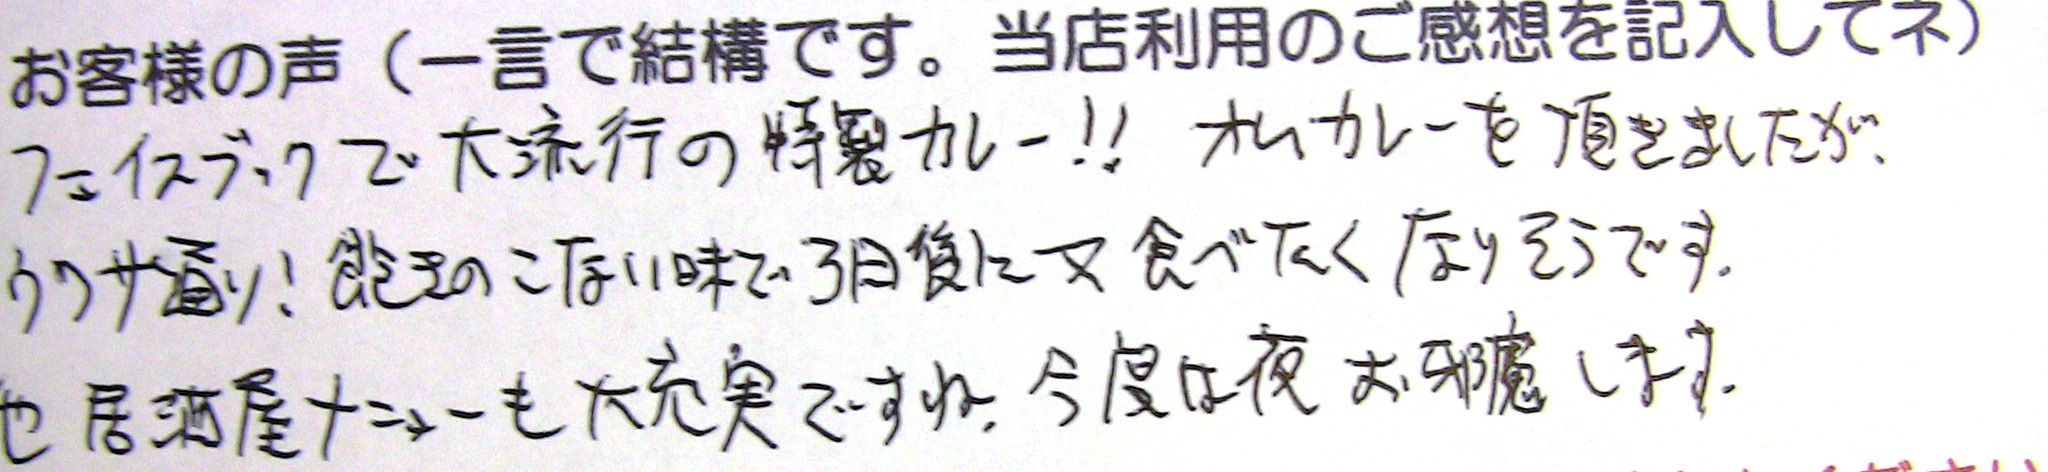 お客様の声（一言で結構です。当店利用のご感想を記入してネ）
フェイスブックで大流行の特製カレー!! オムカレーを頂きましたが、
ウワサ通り! 飽きのこない味で3日後に又食べたくなりそうです。
居酒屋メニューも大充実ですね。今度は夜お邪魔します。